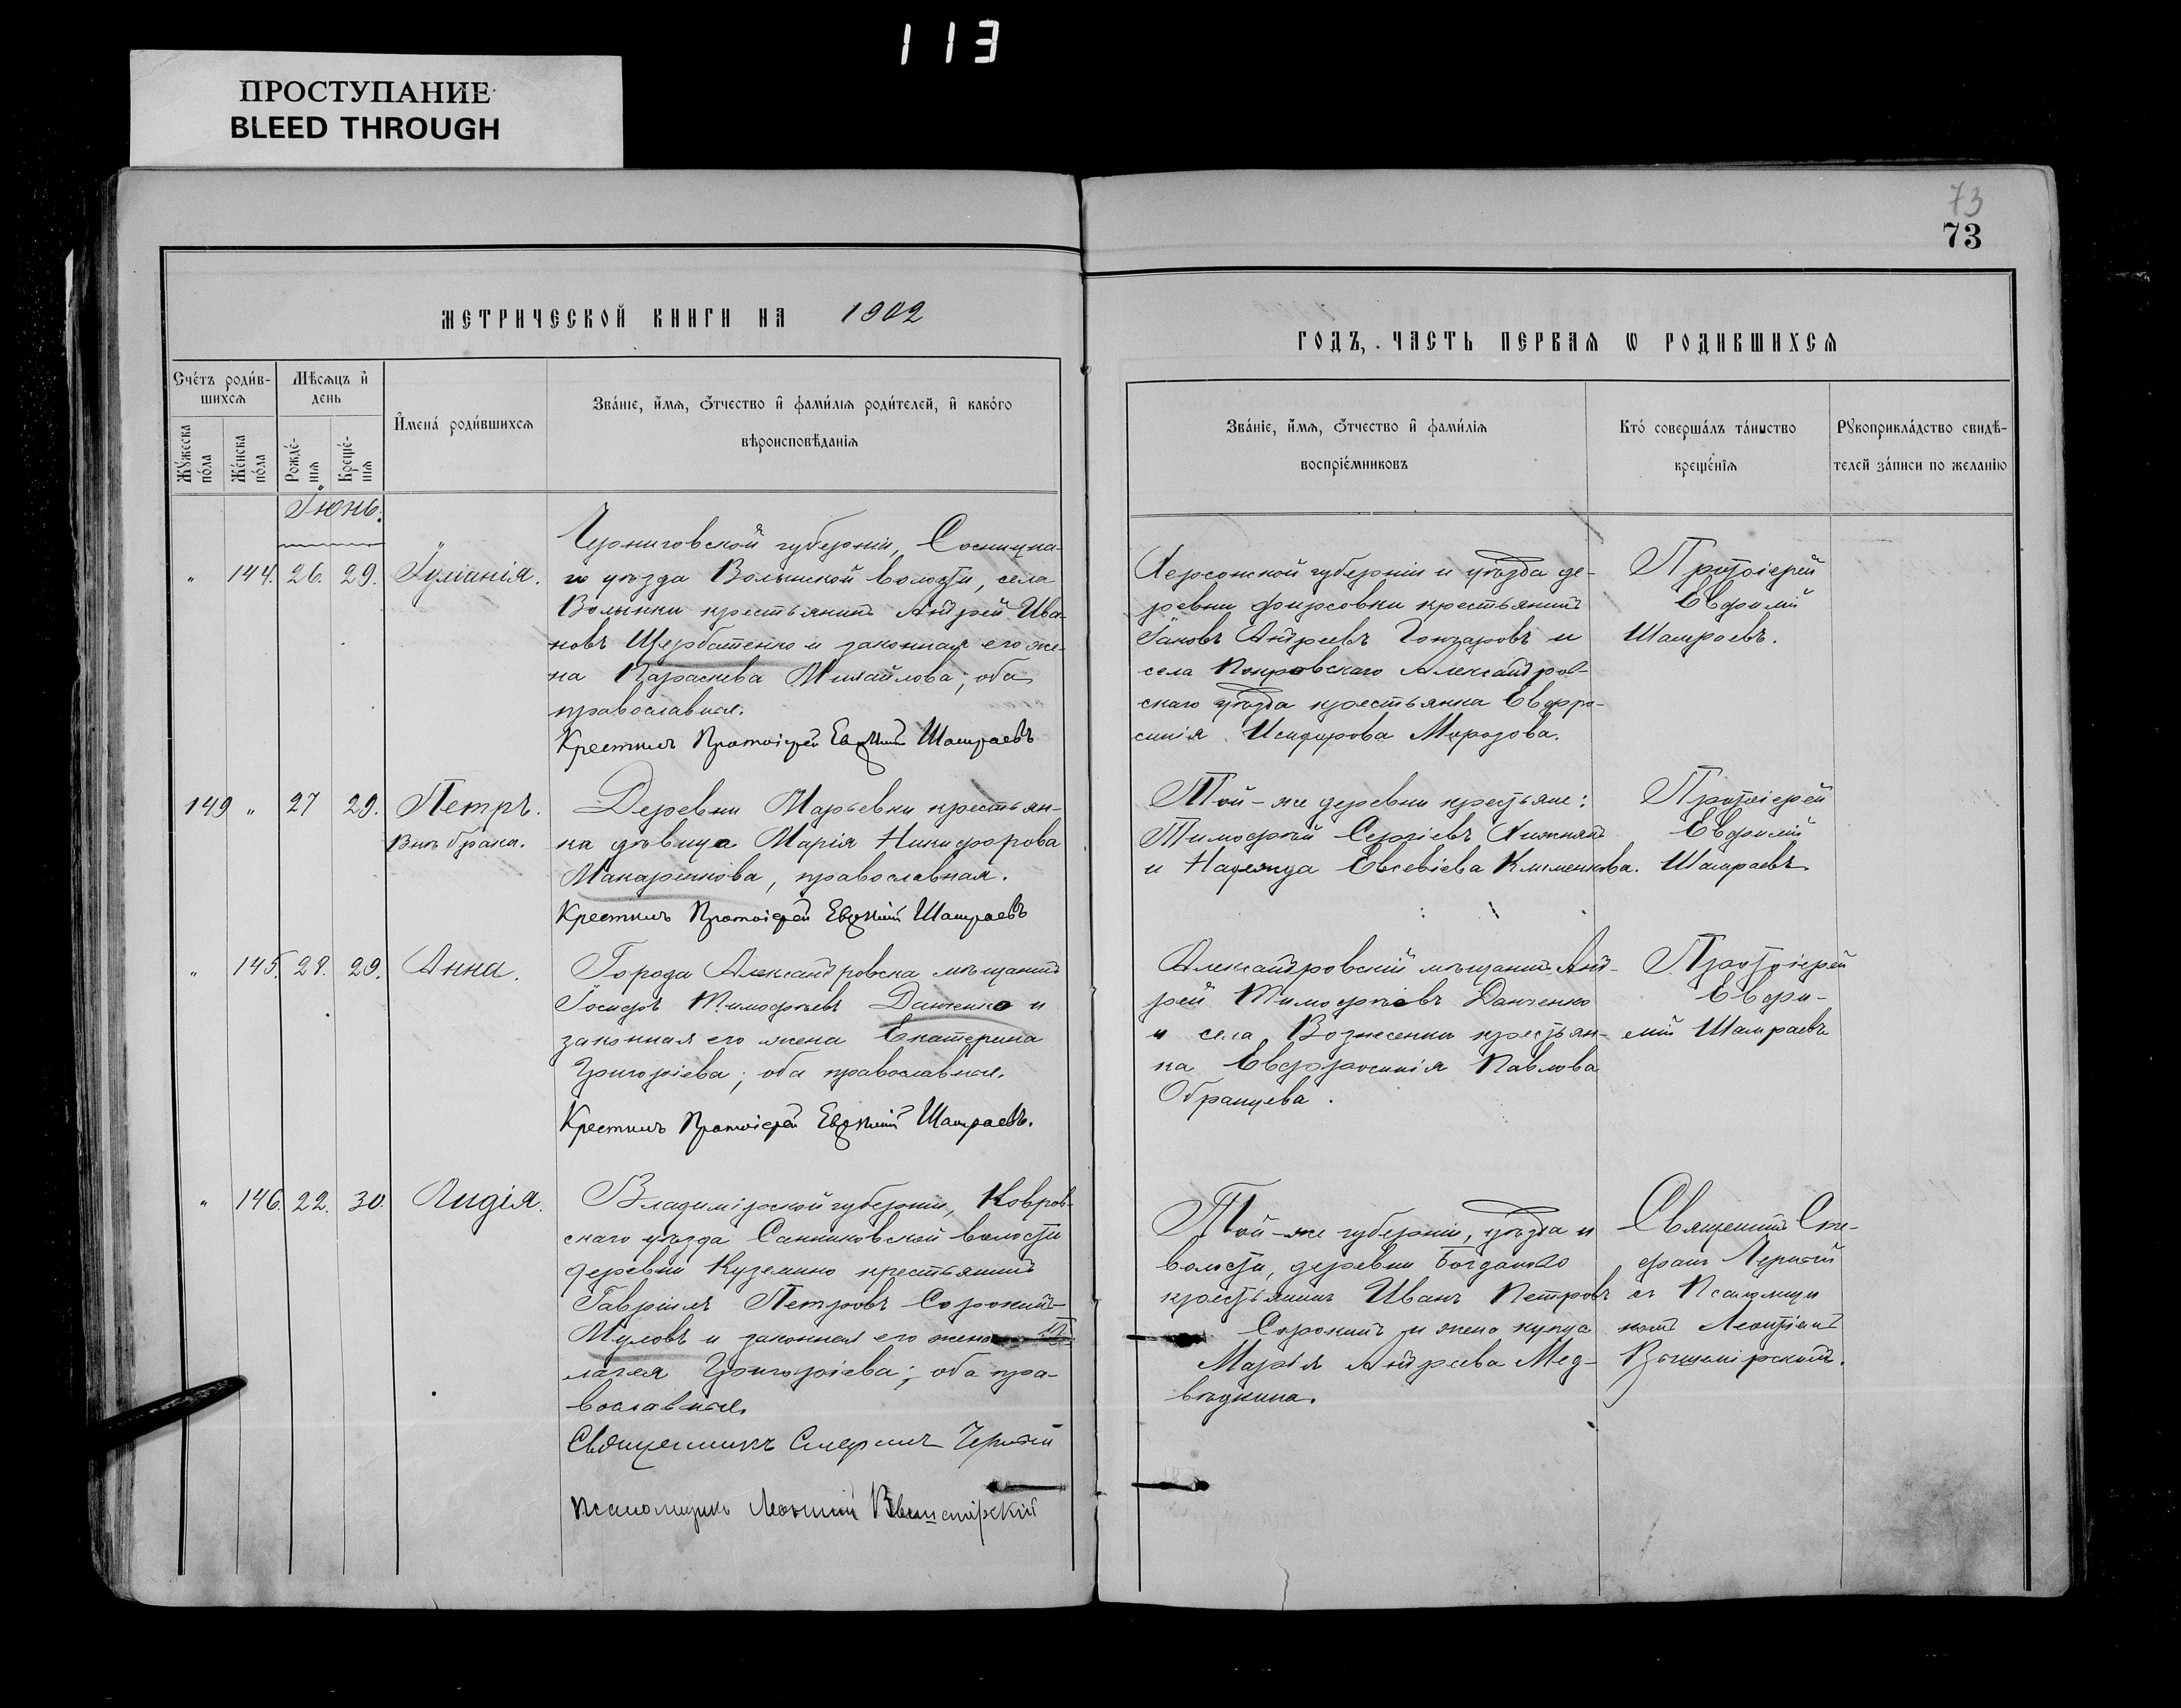 113
ПРОСТУПАНИЕ
BLEED THROUGH
73
73
МЕТРИЧЕСКОЙ КНИГИ НА 1902
ГОДЪ, ЧАСТЬ ПЕРВАѦ Ѡ РОДИВШИХСѦ
Сче́тъ роди́в-
шихсѧ
Мѣ́сѧцъ и҆
день
Мꙋ́жеска
по́ла
Же́нска
по́ла
Рожде́-
нїѧ
Креще́-
нїѧ
И҆мена́ роди́вшихсѧ
Зва́нїе, и҆́мѧ, ѻ҆́тчество и҆ фами́лїѧ роди́телей, и҆ како́гѡ
вѣроисповѣ́данїѧ
Зва́нїе, и҆́мѧ, ѻ҆́тчество и҆ фами́лїѧ
воспрїе́мниковъ
Кто́ соверша́лъ та́инство
креще́нїѧ
Рꙋкоприкла́дство свидѣ́-
телей за́писи по жела́нїю
Іюнь.
" 144. 26. 29. Іуліанія.
Черниговской губерніи, Сосницка-
го уѣзда Волынской волости, села
Волынки крестьянинъ Андрей Ива-
новъ Щербатенко и законная его же-
на Параскева Михайлова; оба
православные.
Крестилъ Протоіерей Евфимій Шамраевъ
Херсонской губерніи и уѣзда де-
ревни Фирсовки крестьянинъ
Іаковъ Андреевъ Гончаровъ и
села Покровскаго Александров-
скаго уѣзда крестьянка Евфро-
синія Исидорова Морозова.
Протоіерей
Евфимій
Шамраевъ.
149 " 27 29. Петръ.
Внѣ брака.
Деревни Марьевки крестьян-
ка дѣвица Марія Никифорова
Макаренкова, православная.
Крестилъ Протоіерей Евфимій Шамраевъ
Той-же деревни крестьяне:
Тимофей Сергіевъ Хижнякъ
и Надежда Евсевіева Клименкова.
Протоіерей
Евфимій
Шамраевъ.
" 145. 28. 29. Анна.
Города Александровска мѣщанинъ
Іосифъ Тимофѣевъ Данченко и
законная его жена Екатерина
Григоріева; оба православные.
Крестилъ Протоіерей Евфимій Шамраевъ.
Александровскій мѣщанинъ Анд-
рей Тимофѣевъ Данченко
и села Вознесенки крестьян-
ка Евфросинія Павлова
Обранцева.
Протоіерей
Евфи-
мій Шамраевъ
" 146. 22. 30. Лидія.
Владимірской губерніи, Ковров-
скаго уѣзда Санниковской волости
деревни Куземино крестьянинъ
Гавріилъ Петровъ Сорокинъ-
Муловъ и законная его жена Пе-
лагея Григоріева; оба пра-
вославные.
Священникъ Стефанъ Чернай
Псаломщикъ Леонтій
Той-же губерніи, уѣзда и
волости, деревни Богданово
крестьянинъ Иванъ Петровъ
Сорокинъ и жена купца
Марія Андреева Мед-
вѣдкина.
Священникъ Сте-
фанъ
съ Псаломщи
комъ Леонтіемъ